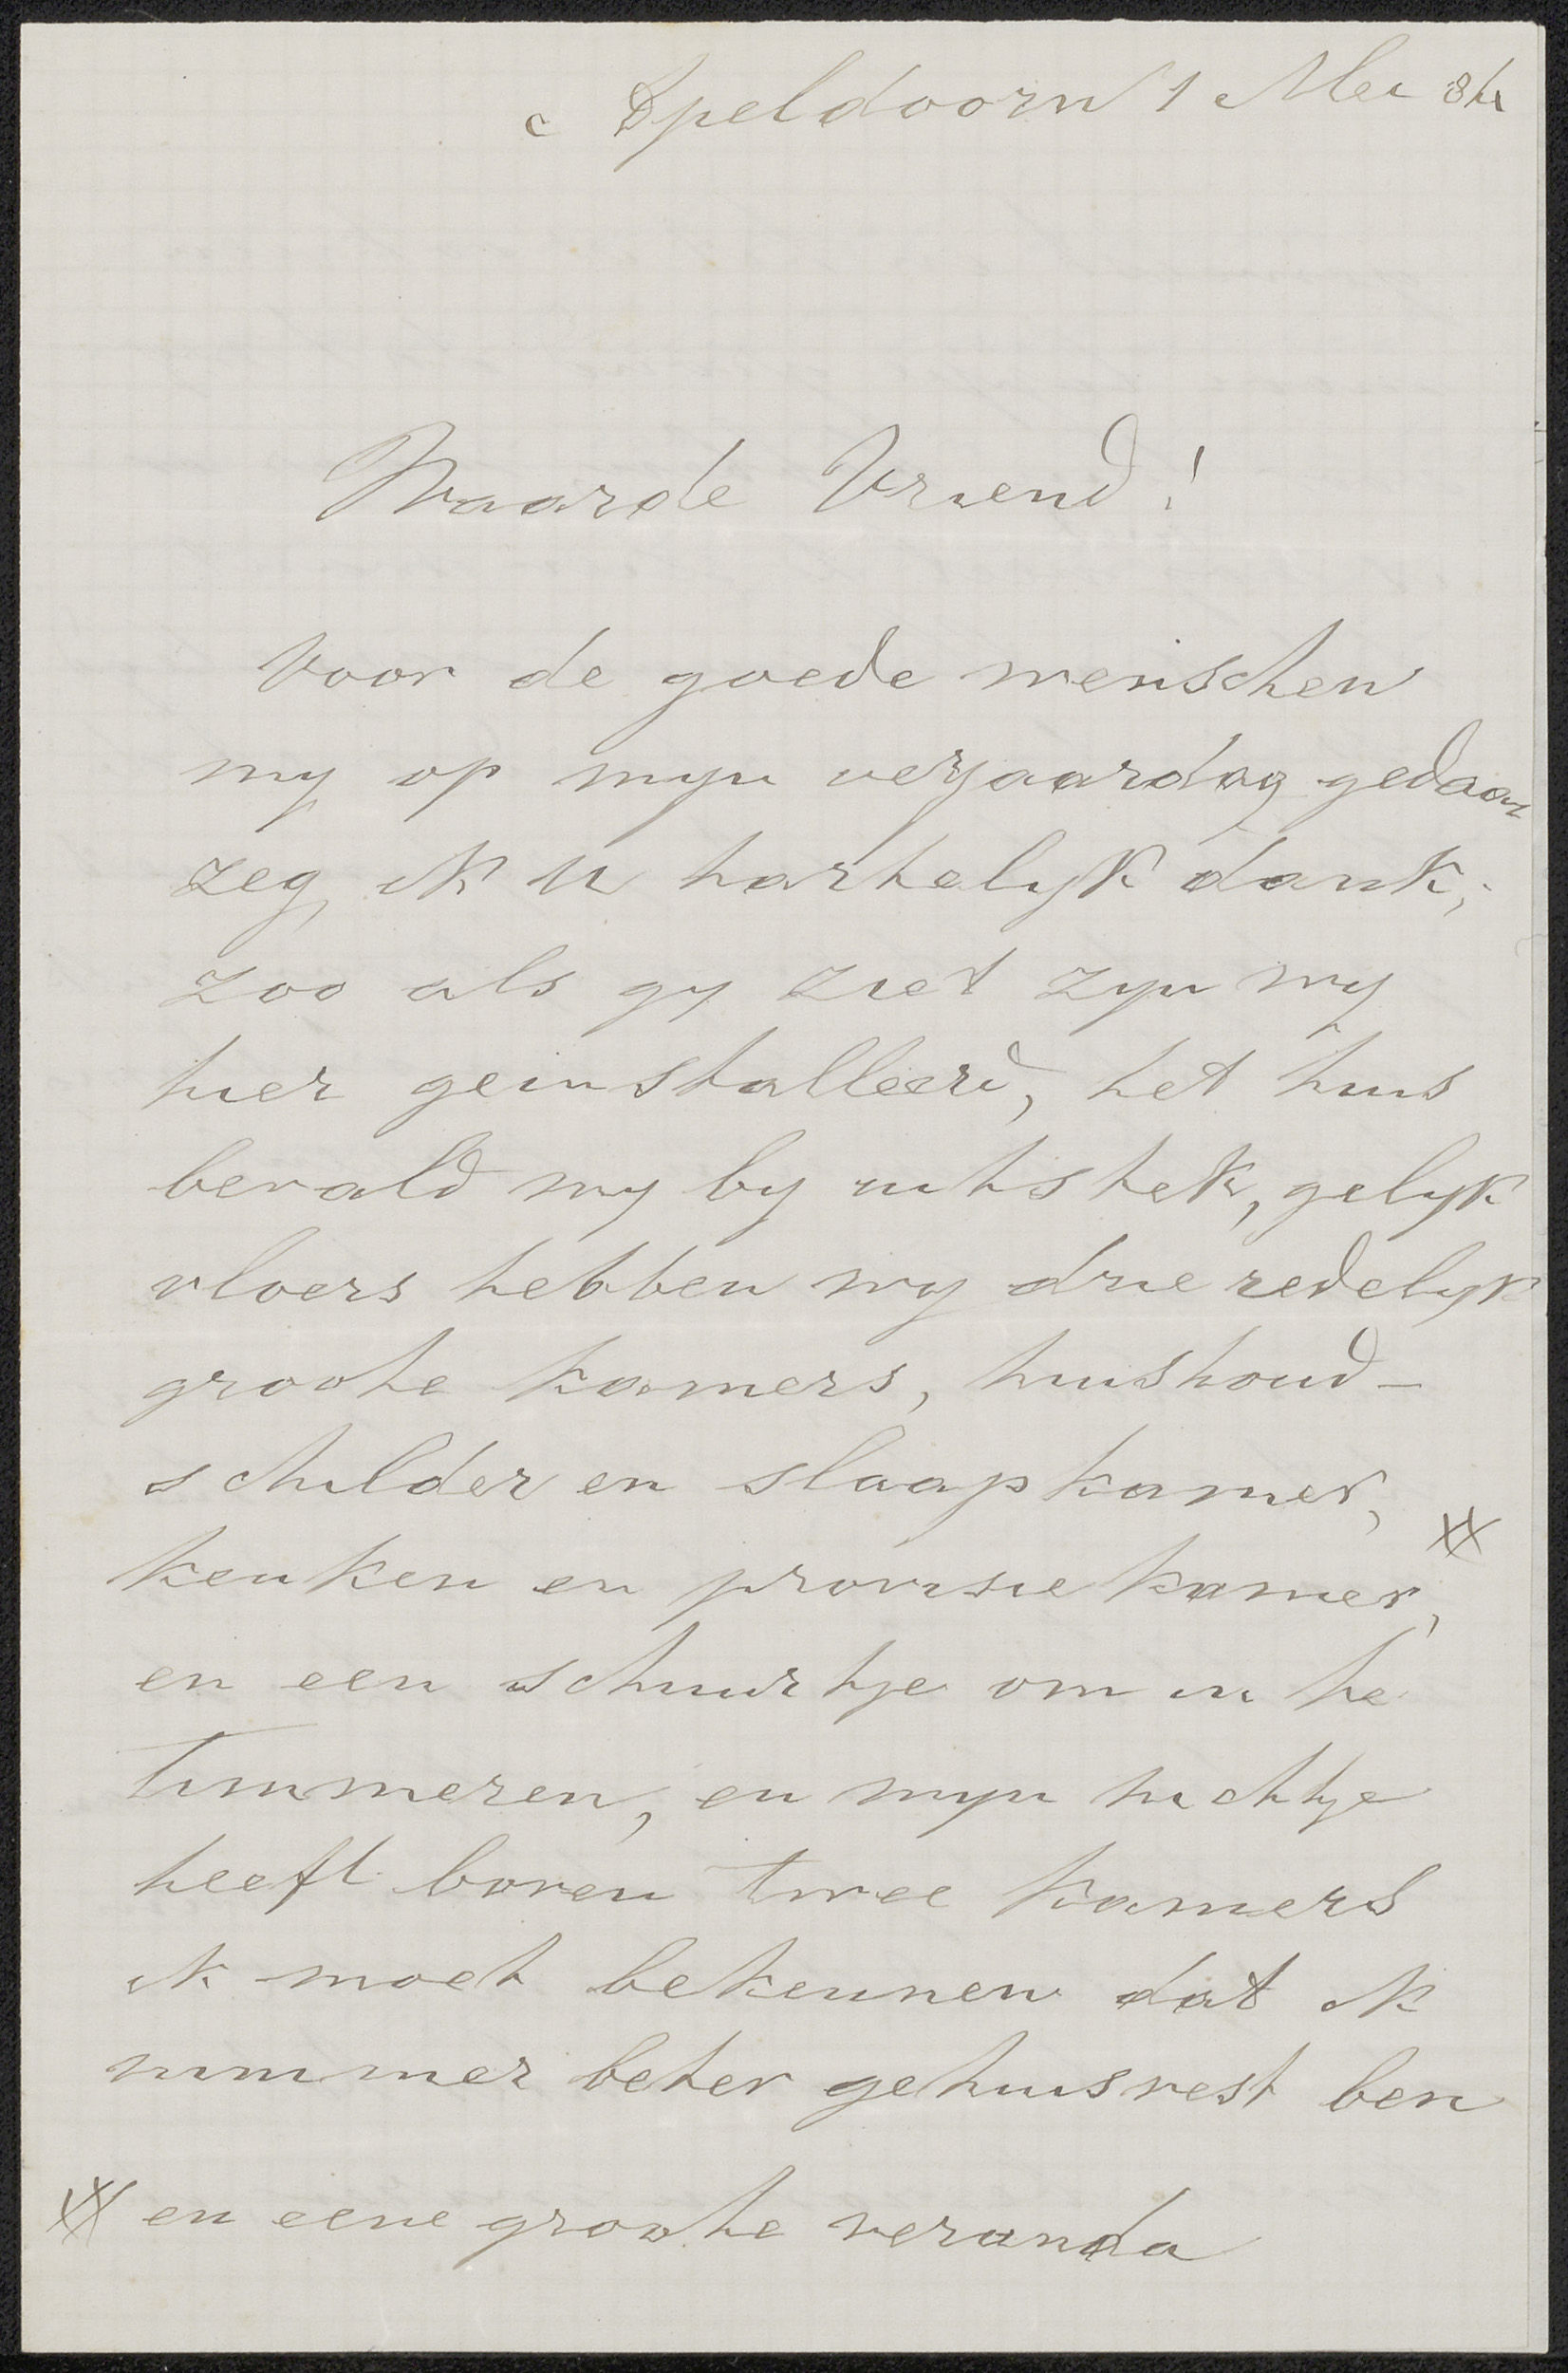 Apeldoorn 1 Mei 84
Waarde Vriend!
Voor de goede wenschen
my op myn verjaardag gedaan
zeg ik U hartelyk dank,
zoo als gy ziet zyn wy
hier geinstalleerd, het huis
bevald my by uitstek, gelyk
vloers hebben wy drie redelyk
groote kamers, huishoud-
schilder en slaapkamer,
keuken en provisie kamer, #
en een schuurtje om in te
Timmeren, en myn nichtje
heeft boven twee kamers
ik moet bekennen dat ik
nimmer beter gehuisvest ben
# en eene groote veranda